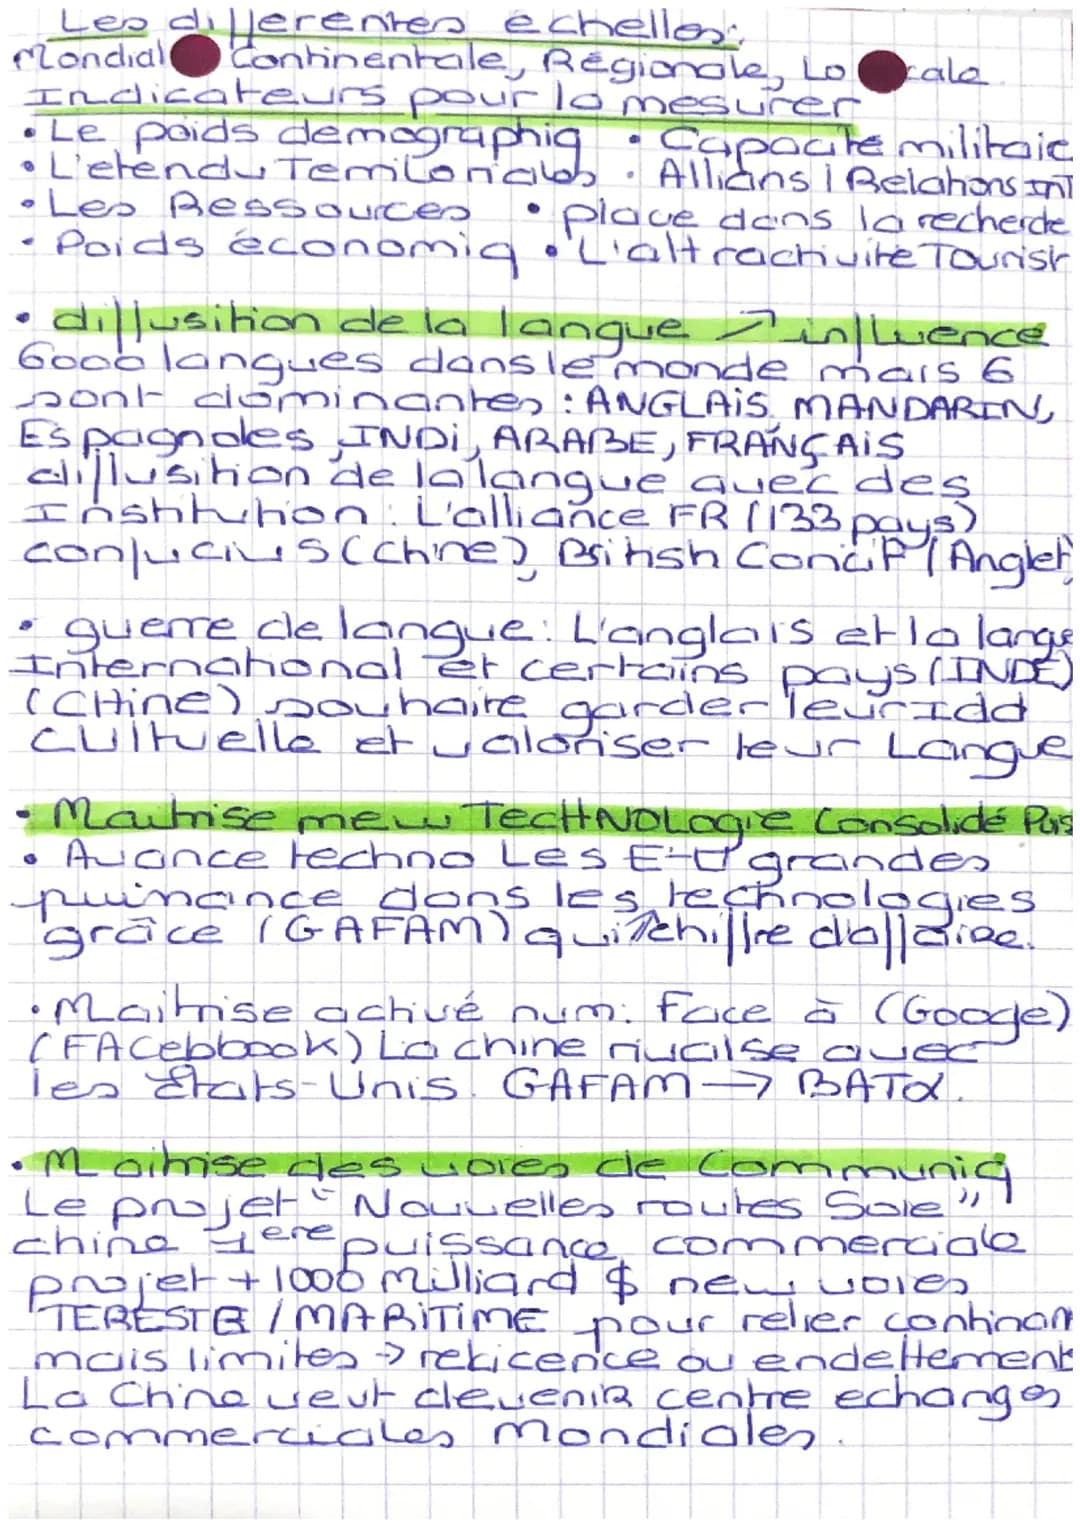 Les differentes échelles:
Mondial Continentale, Régionale, Locale
Indicateurs pour la mesurer
• Le poids démographiq • Capacité militaic
• L'etendu Territoriales • Allians / Relations INT
• Les Ressources • place dans la recherche
• Poids économiq • L'attractivite Tourist
• diffusition de la langue ↗ influence
6000 langues dans le monde mais 6
sont dominantes : ANGLAIS, MANDARIN,
Espagnoles, INDI, ARABE, FRANÇAIS
diffusition de la langue avec des
Institution : L'alliance FR (133 pays)
confucius (chine), British Concil (Anglet)
• guerre de langue : L'anglais et la lange
International et certains pays (INDE)
(CHine) souhaite garder leur Idd
culturelle et valoriser leur Langue
• Maitrise new TecHNOLogie Consolidé Puis
• Avance techno Les E-U grandes
puissance dans les technologies
grâce (GAFAM) qui ↗ chiffre d'affaire.
• Maitrise activé num: Face à (Google)
(FAcebbook) La chine rivalse avec
les États-Unis. GAFAM → BATX.
• Maitrise des voies de Communiq
Le projet "Nouvelles routes Soie"
chine 1ere puissance commerciale
projet + 1000 Milliard $ new voies
TERESTR / MARITIME pour relier continan
mais limites → reticence ou endettement
La Chine veut devenir centre echanges
commerciales Mondiales.